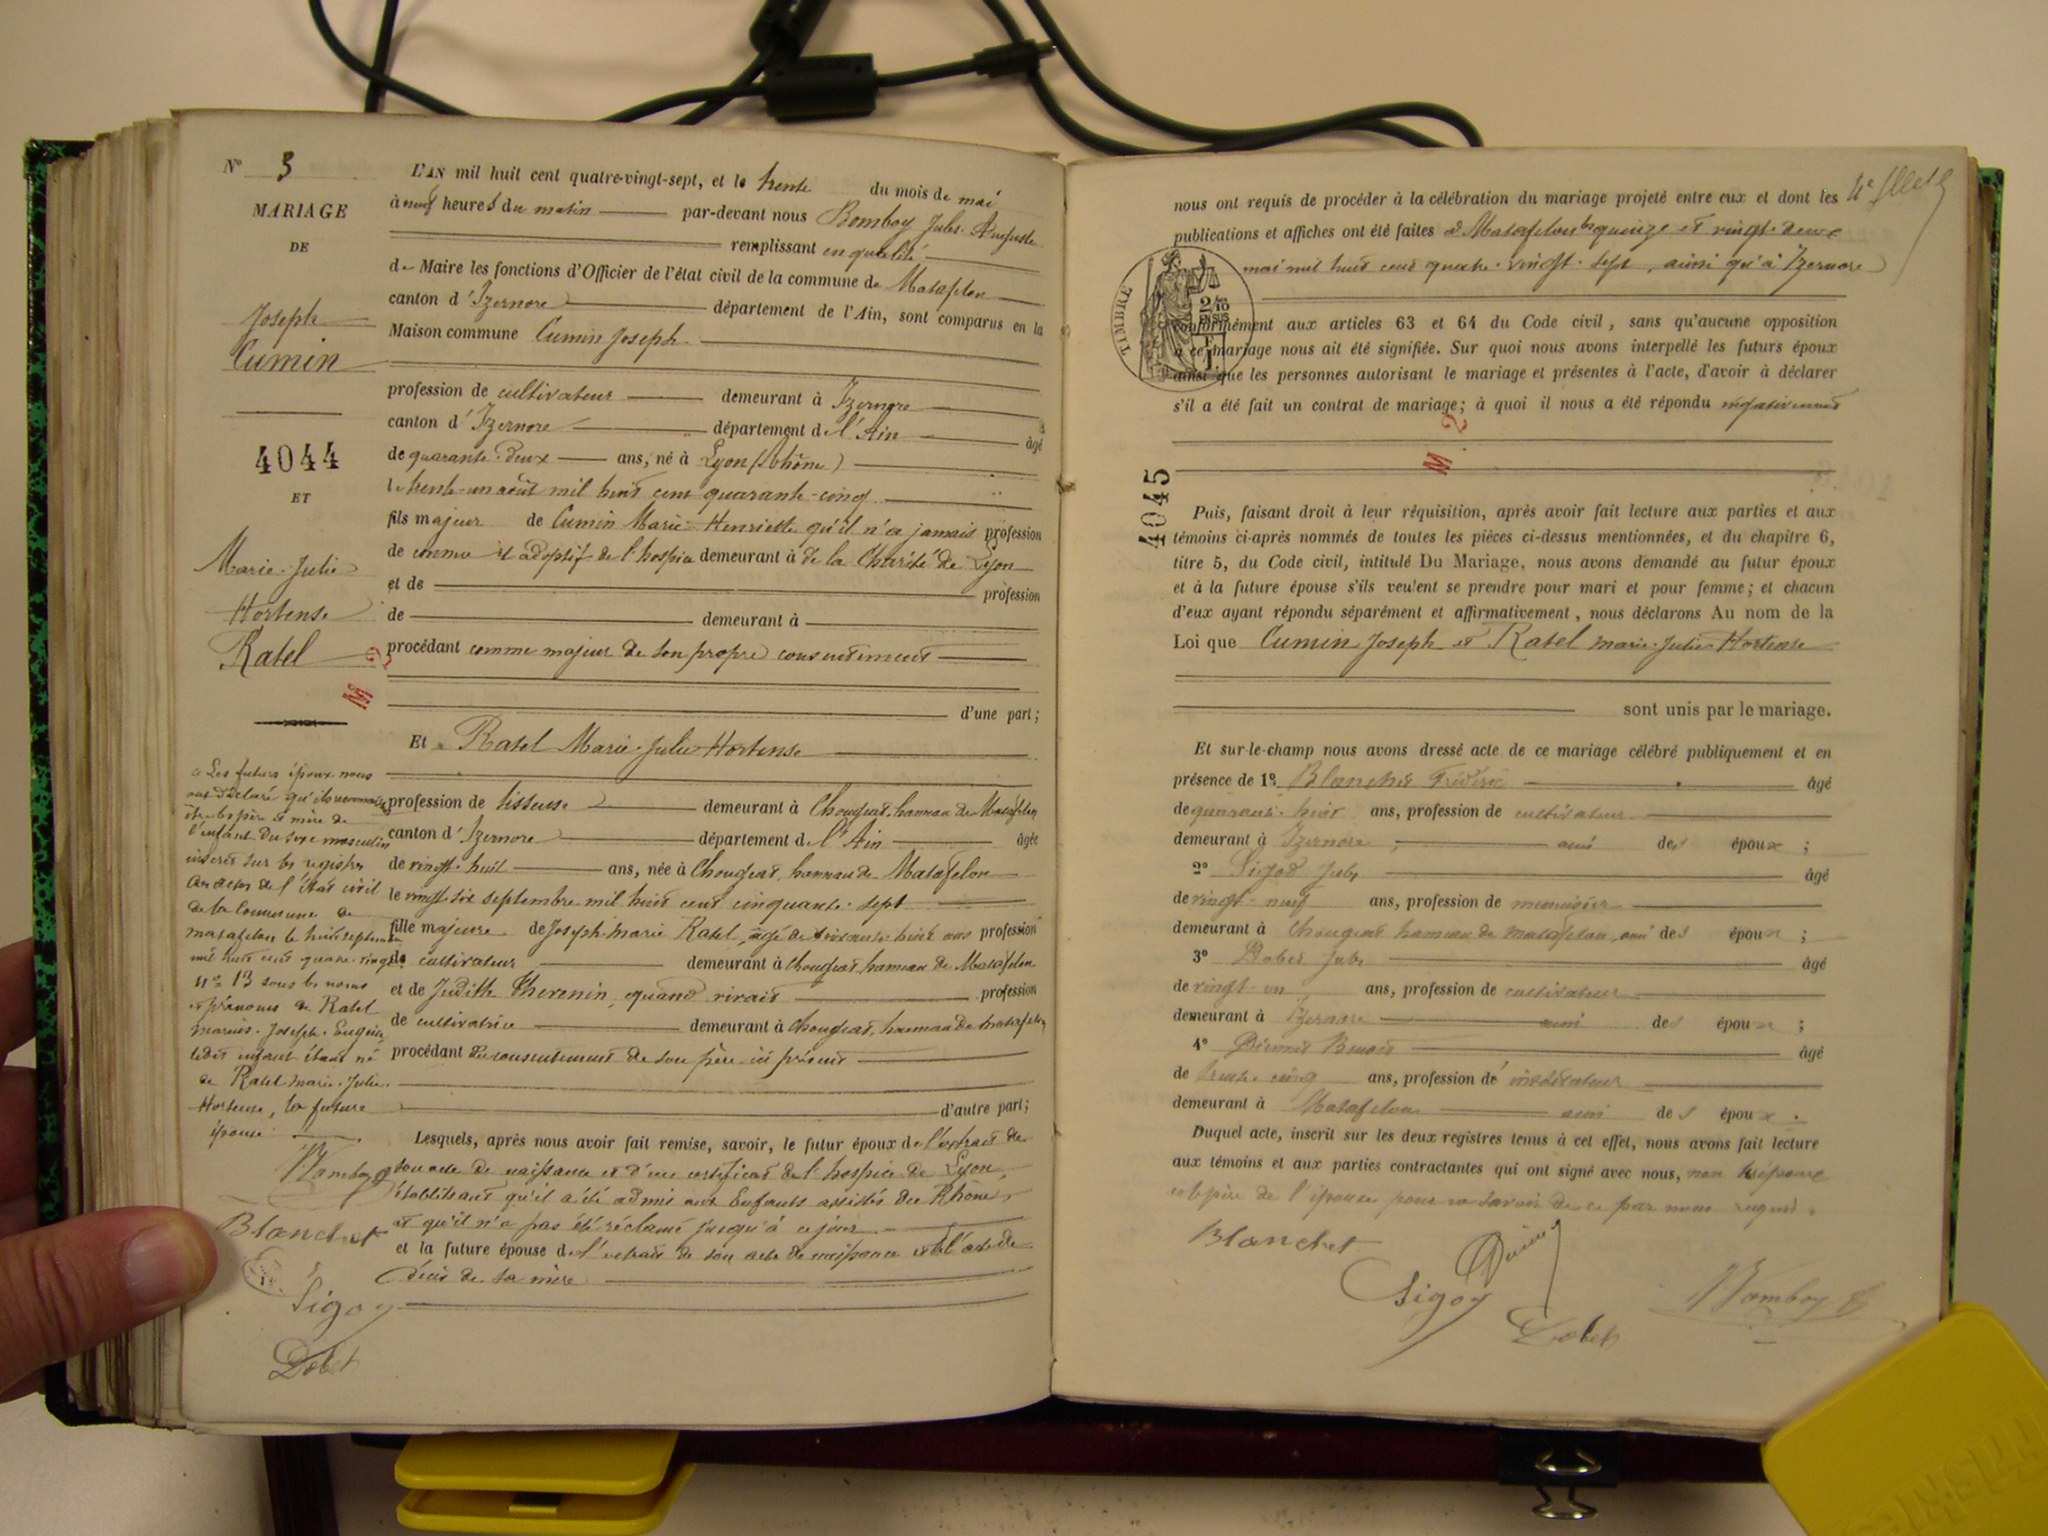 N° 3
MARIAGE
DE
Joseph
Cumin
4044
ET
Marie-Julie
Hortense
Ratel
M 2
L'AN mil huit cent quatre-vingt-sept, et le trente du mois de mai
à neuf heures du matin par-devant nous Bomboy Jules-Auguste
remplissant en qualité
de Maire les fonctions d'Officier de l'état civil de la commune de Matafelon
canton d'Izernore département de l'Ain, sont comparus en la
Maison commune Cumin Joseph
profession de cultivateur demeurant à Izernore
canton d'Izernore département de l'Ain âgé
de quarante-deux ans, né à Lyon (Rhône)
le trente-un août mil huit cent quarante-cinq
fils majeur de Cumin Marie-Henriette qu'il n'a jamais profession
de connue et adoptif de l'hospice demeurant à de la Charité de Lyon
et de profession
de demeurant à
procédant comme majeur de son propre consentement
d'une part;
Et Ratel Marie-Julie-Hortense
profession de tisseuse demeurant à Chougeat, hameau de Matafelon
canton d'Izernore département de l'Ain âgée
de vingt-huit ans, née à Chougeat, hameau de Matafelon
le vingt-six septembre mil huit cent cinquante-sept
fille majeure de Joseph-Marie Ratel, âgé de soixante-huit ans profession
de cultivateur demeurant à Chougeat, hameau de Matafelon
et de Judith Thevenin, quand vivait profession
de cultivatrice demeurant à Chougeat, hameau de Matafelon
procédant du consentement de son père ici présent
d'autre part;
Lesquels, après nous avoir fait remise, savoir, le futur époux de l'extrait de
son acte de naissance et d'un certificat de l'hospice de Lyon,
établissant qu'il a été admis aux Enfants assistés du Rhône
et qu'il n'a pas été réclamé jusqu'à ce jour
et la future épouse de l'extrait de son acte de naissance et de l'acte de
décès de sa mère
Les futurs époux nous
ont déclaré qu'ils reconnaissent
être les père et mère de
l'enfant du sexe masculin
inscrit sur les registres
des actes de l'état civil
de la commune de
Matafelon le huit septembre
mil huit cent quatre-vingt
n° 13 sous les noms
et prénoms de Ratel
Marius-Joseph-Eugène,
ledit enfant étant né
de Ratel Marie-Julie
Hortense, la future
épouse
Bomboy
Blanchet
Sigoy
Dobet
4e
nous ont requis de procéder à la célébration du mariage projeté entre eux et dont les
publications et affiches ont été faites à Matafelon les quinze et vingt-deux
mai mil huit cent quatre-vingt-sept, ainsi qu'à Izernore
TIMBRE
conformément aux articles 63 et 64 du Code civil, sans qu'aucune opposition
à ce mariage nous ait été signifiée. Sur quoi nous avons interpellé les futurs époux
ainsi que les personnes autorisant le mariage et présentes à l'acte, d'avoir à déclarer
s'il a été fait un contrat de mariage; à quoi il nous a été répondu négativement
M 2
4045
Puis, faisant droit à leur réquisition, après avoir fait lecture aux parties et aux
témoins ci-après nommés de toutes les pièces ci-dessus mentionnées, et du chapitre 6,
titre 5, du Code civil, intitulé Du Mariage, nous avons demandé au futur époux
et à la future épouse s'ils veulent se prendre pour mari et pour femme; et chacun
d'eux ayant répondu séparément et affirmativement, nous déclarons Au nom de la
Loi que Cumin Joseph et Ratel Marie-Julie-Hortense
sont unis par le mariage.
Et sur-le-champ nous avons dressé acte de ce mariage célébré publiquement et en
présence de 1° Blanchet Frédéric âgé
de quarante-huit ans, profession de cultivateur
demeurant à Izernore ami des époux;
2° Jules âgé
de vingt-neuf ans, profession de menuisier
demeurant à Chougeat hameau de Matafelon, ami des époux;
3° Dobet Jules âgé
de vingt-un ans, profession de cultivateur
demeurant à Izernore ami des époux;
4° Benoit âgé
de trente-cinq ans, profession de
demeurant à Matafelon ami des époux.
Duquel acte, inscrit sur les deux registres tenus à cet effet, nous avons fait lecture
aux témoins et aux parties contractantes qui ont signé avec nous, non l'épouse
et le père de l'épouse pour ne savoir de ce par nous requis.
Blanchet
Sigoy
Dobet
Bomboy